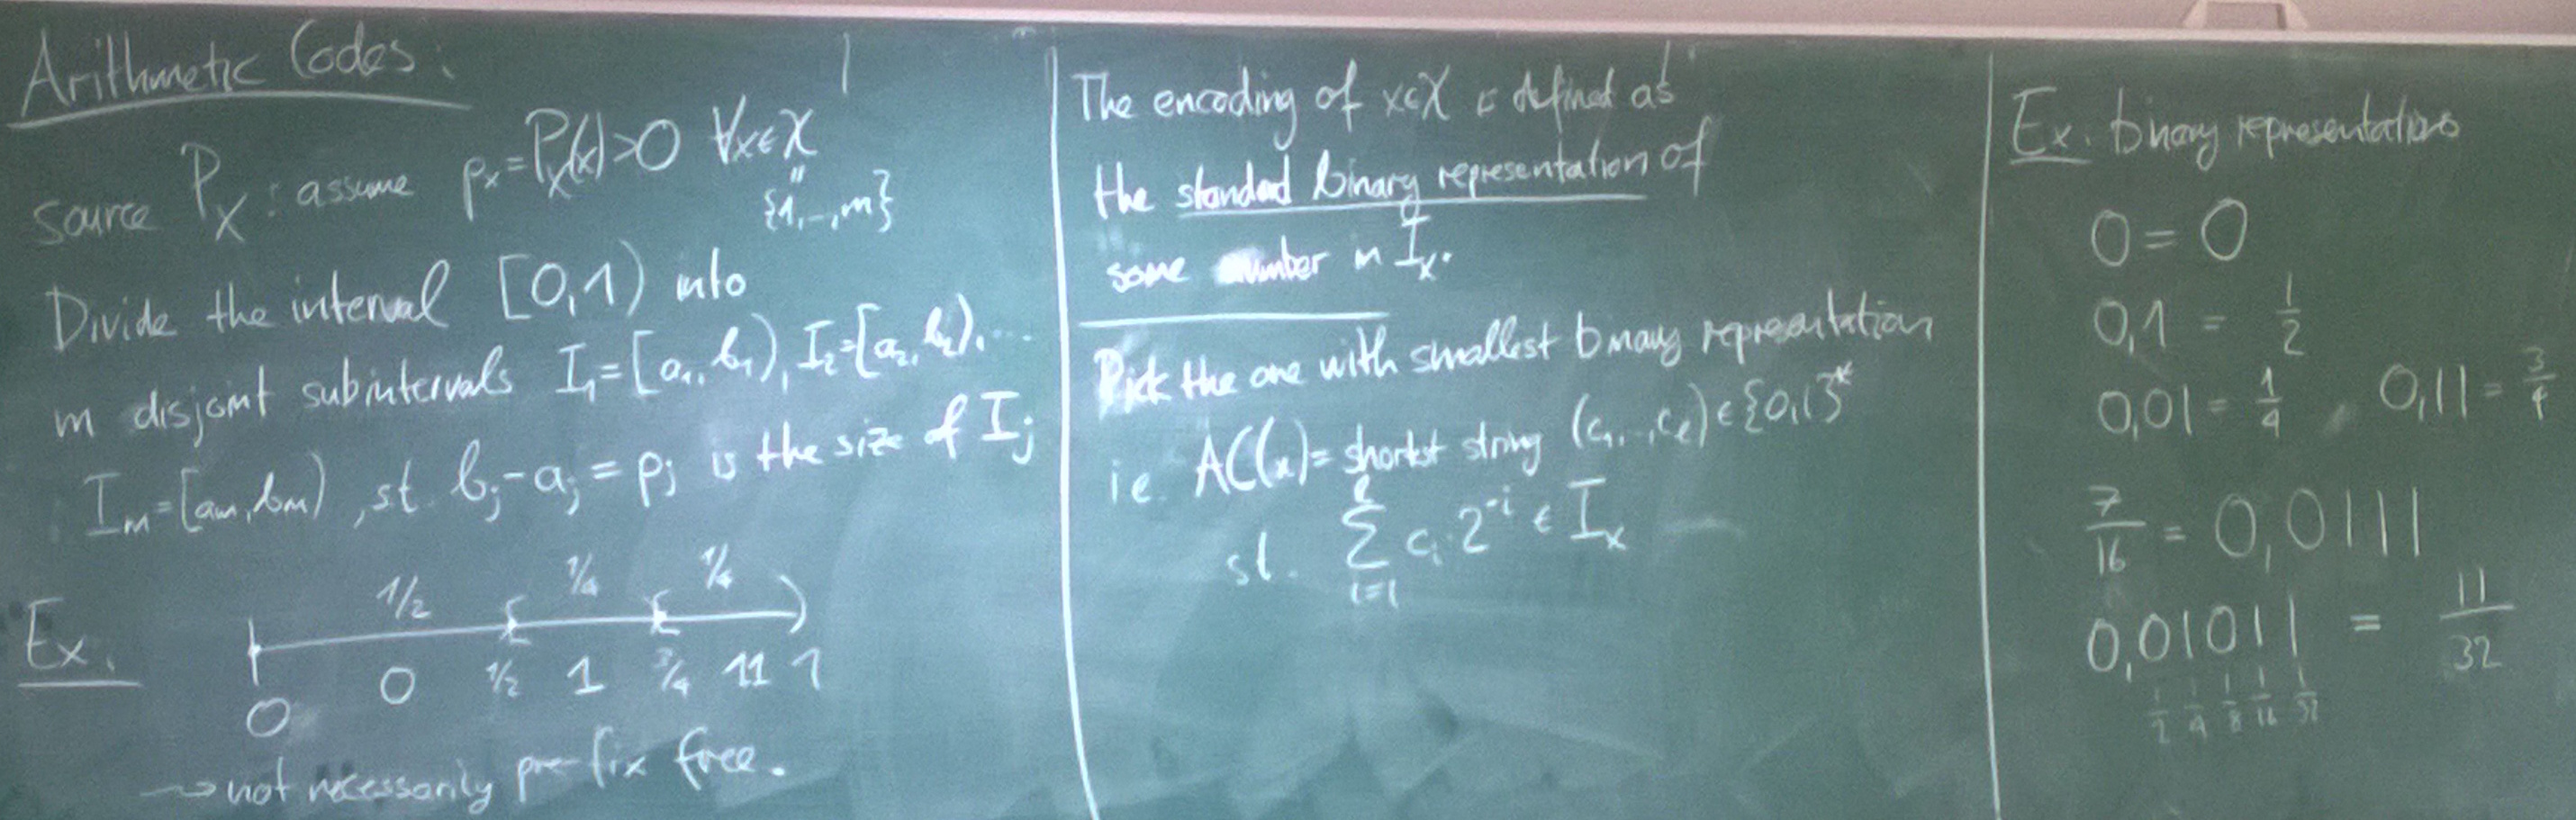 Arithmetic Codes:
source P_X : assume p_x = P_X(x) > 0 ∀x∈X
"
{1,..,m}
Divide the interval [0,1) into
m disjoint subintervals I_1=[a_1,b_1), I_2=[a_2,b_2),...
I_m=[a_m,b_m) , st. b_j-a_j = p_j is the size of I_j
Ex.
1/2 1/4 1/4
0 0 1/2 1 3/4 11 1
→ not necessarily pre-fix free.
The encoding of x∈X is defined as
the standard binary representation of
some number in I_x.
Pick the one with smallest binary representation
ie. AC(x) = shortest string (c_1,..,c_ℓ) ∈ {0,1}^*
st. ∑_{i=1}^{ℓ} c_i 2^{-i} ∈ I_x
Ex. binary representations
0 = 0
0,1 = 1/2
0,01 = 1/4 , 0,11 = 3/4
7/16 = 0,0111
0,01011 = 11/32
1/2 1/4 1/8 1/16 1/32